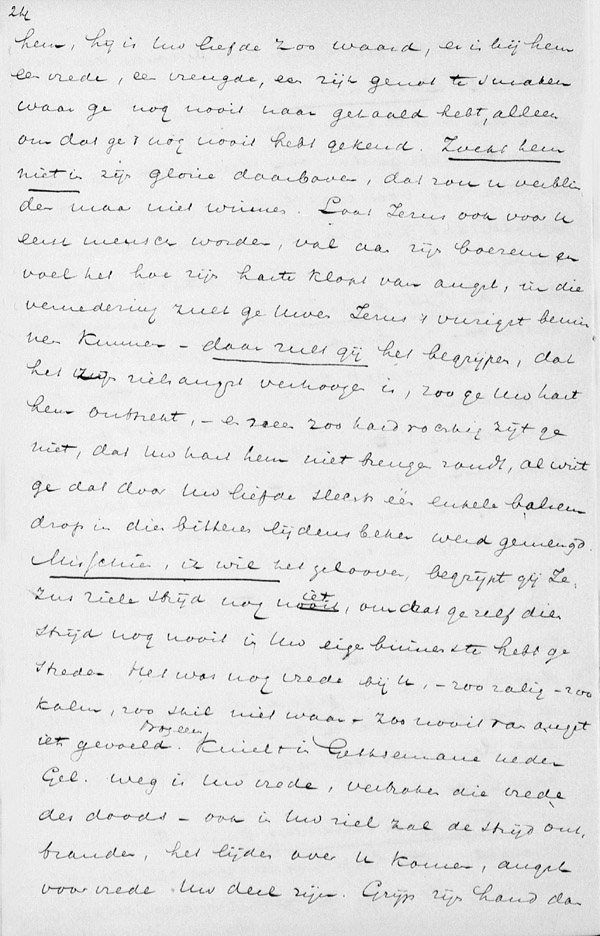 24
hem, hij is Uw liefde zoo waard, er is bij hem
een vrede, een vreugde, een rijk genot te smaken
waar ge nog nooit naar getaald hebt, alleen
om dat ge 't nog nooit hebt gekend. Zoekt hem
niet in zijn glorie daarboven, dat zou u verblin
den maar niet winnen. Laat Jezus ook voor U
eerst mensch worden, val aan zijn boezem en
voel het hoe zijn harte klopt van angst, in die
vernedering zult ge Uwen Jezus 't vurigst bemin
nen kunnen – daar zult gij het begrijpen, dat
het zijn zielsangst verhoogen is, zoo ge Uw hart
hem onttrekt, – en neen zoo hardvochtig zijt ge
niet, dat Uw hart hem niet brengen zoudt, al wist
ge dat door Uw liefde slechts één enkele balsem
drop in dien bitteren lijdensbeker werd gemengd.
Misschien, ik wil het gelooven, begrijpt gij Je-
zus ziele strijd nog niet, omdat ge zelf dien
strijd nog nooit in Uw eigen binnenste hebt ge
streden. Het was nog vrede bij U, – zoo zalig – zoo
kalm, zoo stil niet waar – zoo nooit van angst
iets gevoeld. Broeders, Knielt in Gethsemane neder
Gel. weg is Uw vrede, verbroken die vrede
des doods – ook in Uw ziel zal de strijd ont,
branden, het lijden over U komen, angst
voor vrede Uw deel zijn. Grijp zijn hand dan